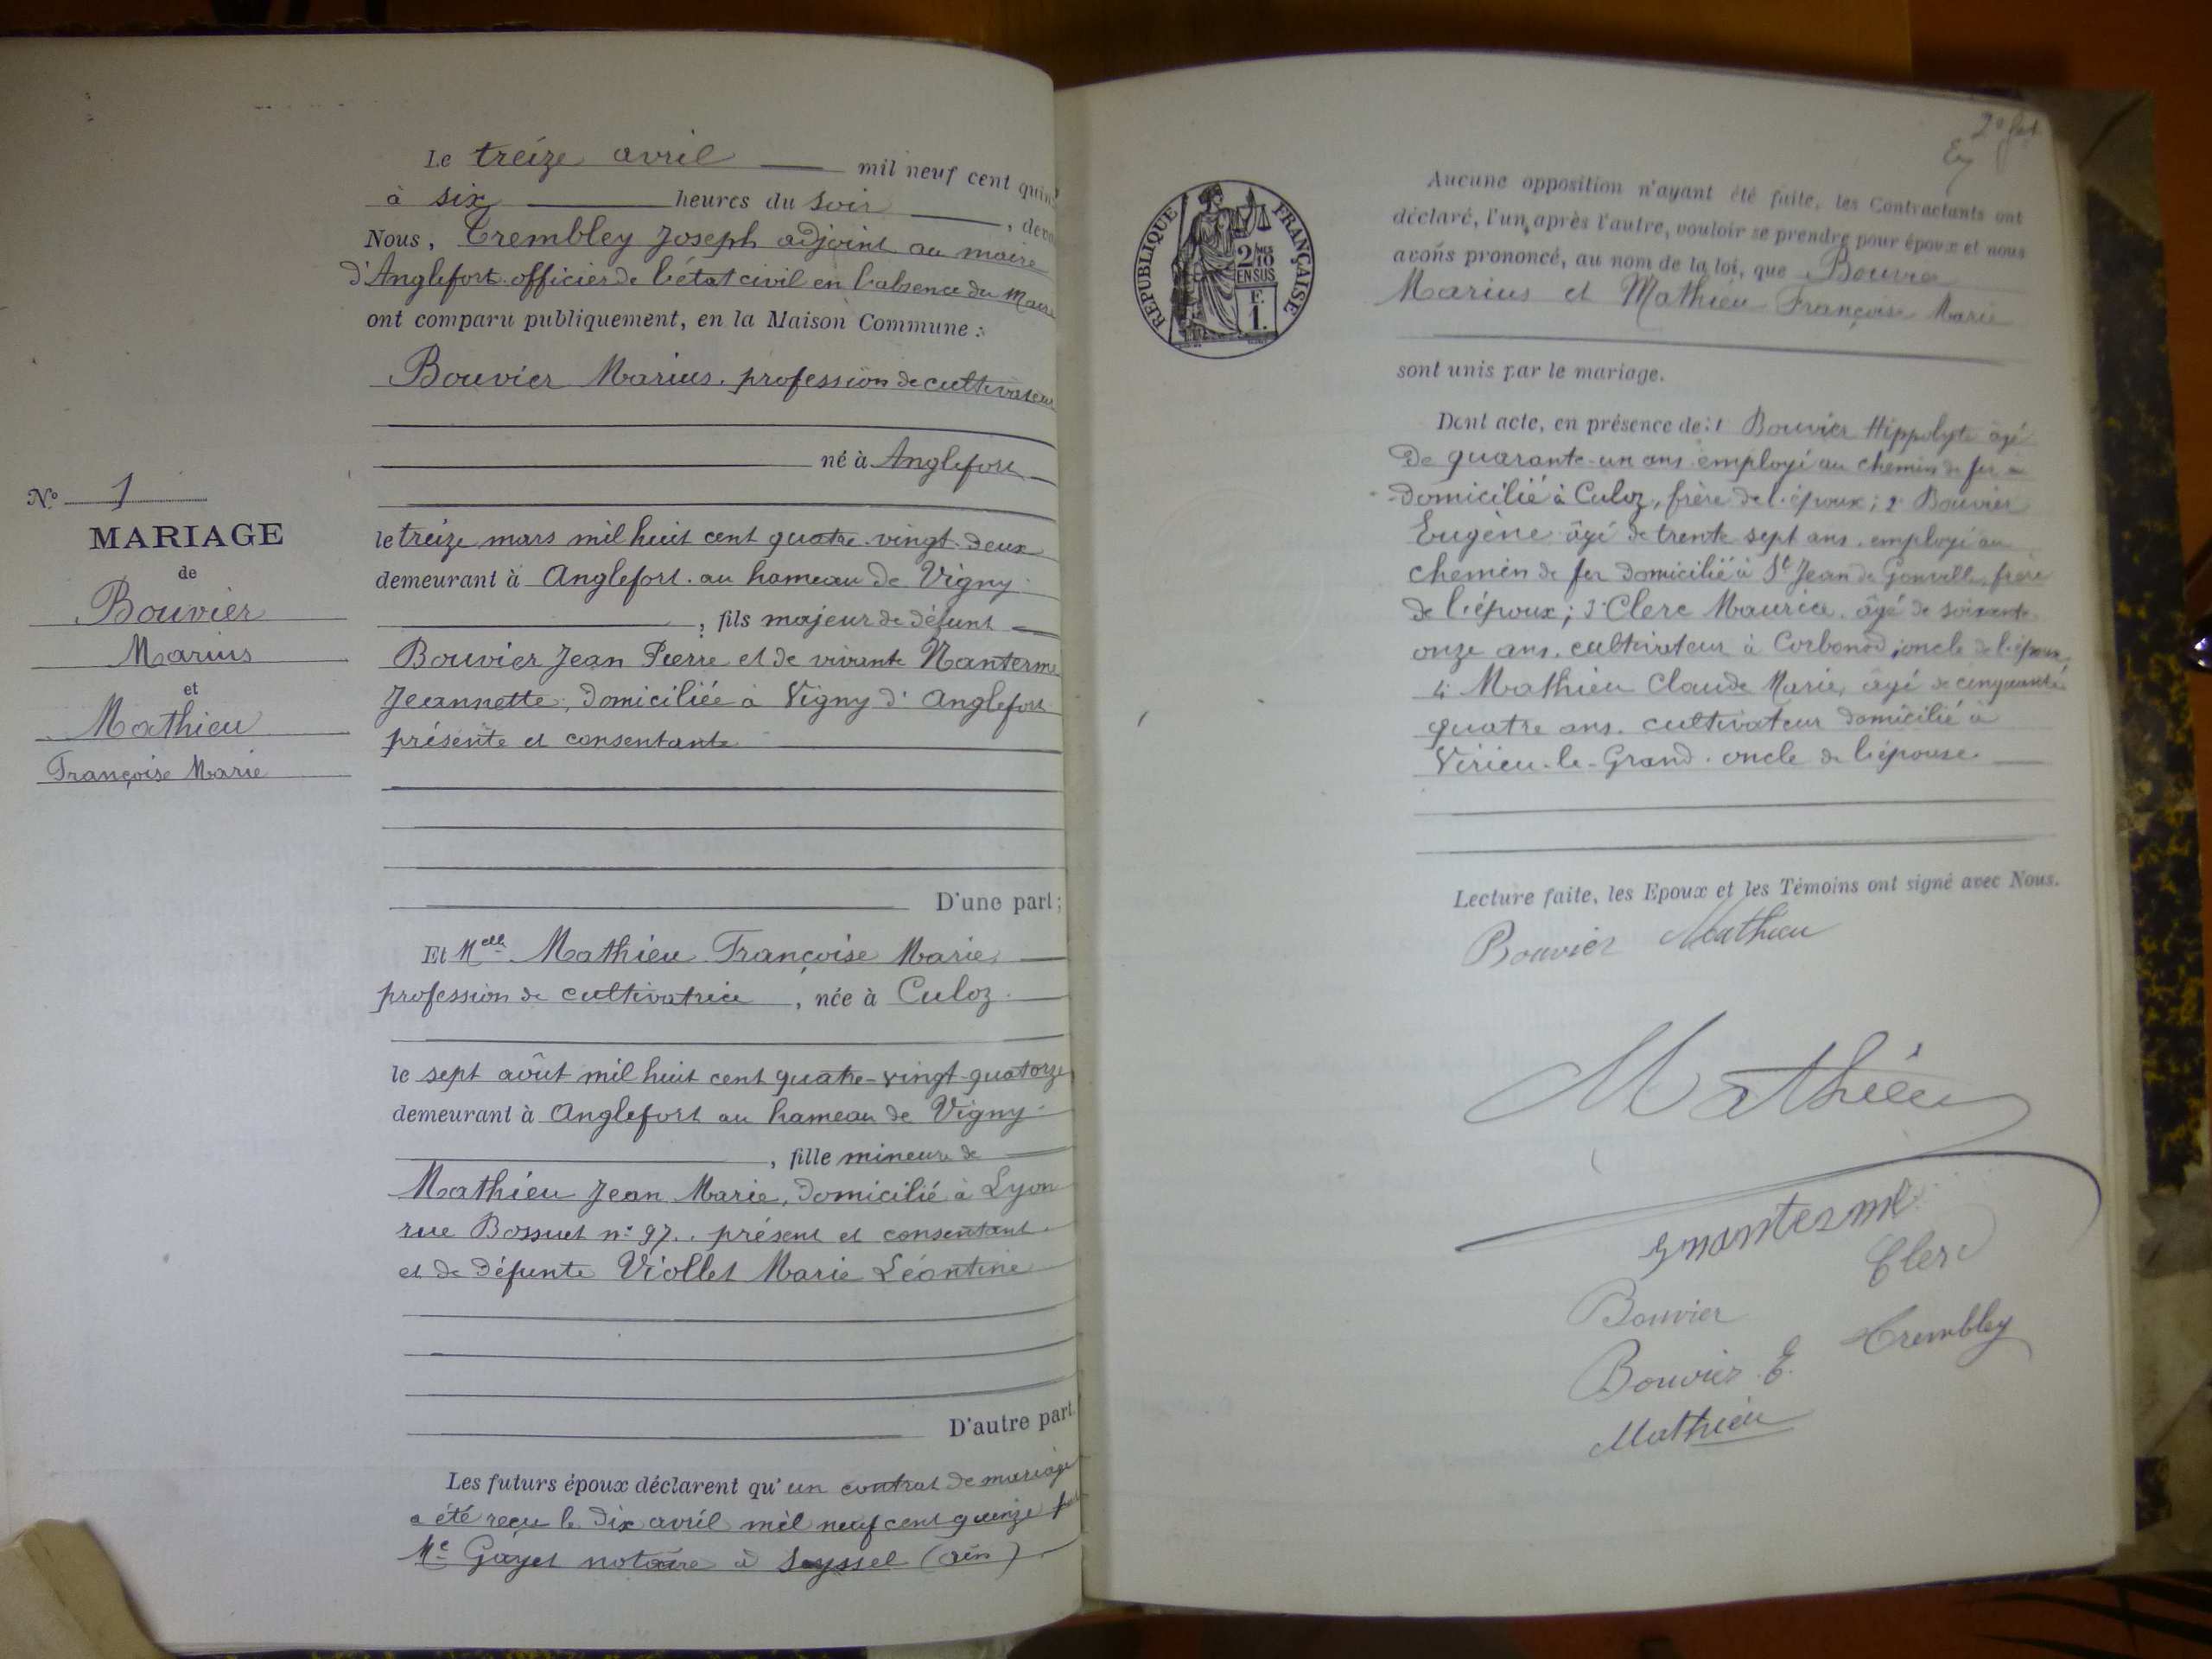 Le treize avril mil neuf cent quin
à six heures du soir, deva
Nous, Trembley Joseph adjoint au maire
d'Anglefort officier de l'état civil en l'absence du Maire
ont comparu publiquement, en la Maison Commune :
Bouvier Marius, profession de cultivateur
né à Anglefort
le treize mars mil huit cent quatre-vingt-deux
demeurant à Anglefort au hameau de Vigny
, fils majeur de défunt
Bouvier Jean Pierre et de vivante Nanterme
Jeannette, domiciliée à Vigny d'Anglefort
présente et consentante
D'une part;
N° 1
MARIAGE
de
Bouvier
Marius
et
Mathieu
Françoise Marie
Et Melle Mathieu Françoise Marie
profession de cultivatrice, née à Culoz
le sept août mil huit cent quatre-vingt-quatorze
demeurant à Anglefort au hameau de Vigny
, fille mineure de
Mathieu Jean Marie, domicilié à Lyon
rue Bossuet n° 97, présent et consentant
et de défunte Viollet Marie Léontine
D'autre part.
Les futurs époux déclarent qu'un contrat de mariage
a été reçu le dix avril mil neuf cent quinze par
Me Gayet notaire à Seyssel (Ain)
RÉPUBLIQUE FRANÇAISE
2/10 MES
EN SUS
F.
1.
2e
Aucune opposition n'ayant été faite, les Contractants ont
déclaré, l'un après l'autre, vouloir se prendre pour époux et nous
avons prononcé, au nom de la loi, que Bouvier
Marius et Mathieu Françoise Marie
sont unis par le mariage.
Dont acte, en présence de: 1 Bouvier Hippolyte âgé
de quarante-un ans employé au chemin de fer
domicilié à Culoz, frère de l'époux; 2° Bouvier
Eugène âgé de trente sept ans, employé au
chemin de fer domicilié à St Jean de Gonville, frère
de l'époux; 3° Clerc Maurice, âgé de soixante
onze ans, cultivateur à Corbonod, oncle de l'époux,
4° Mathieu Claude Marie, âgé de cinquante
quatre ans, cultivateur domicilié à
Virieu-le-Grand, oncle de l'épouse.
Lecture faite, les Epoux et les Témoins ont signé avec Nous.
Bouvier Mathieu
Mathieu
nanterme
Clerc
Bouvier
Trembley
Bouvier E.
Mathieu